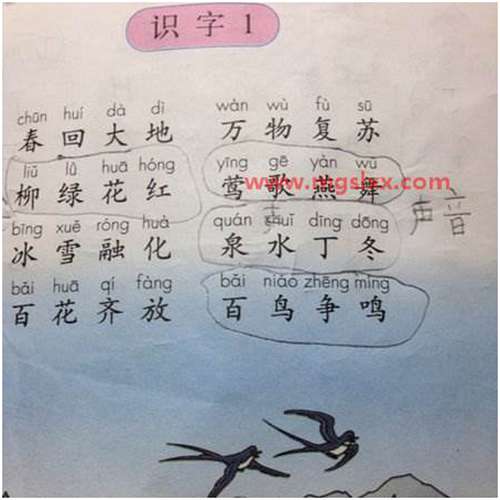 识字1
chūn huí dà dì wàn wù fù sū
春回大地 万物复苏
liǔ lǜ huā hóng yīng gē yàn wǔ
柳绿花红 莺歌燕舞
www.mgslxx.com
声音
bīng xuě róng huà quán shuǐ dīng dōng
冰雪融化 泉水丁冬
bǎi huā qí fàng bǎi niǎo zhēng míng
百花齐放 百鸟争鸣